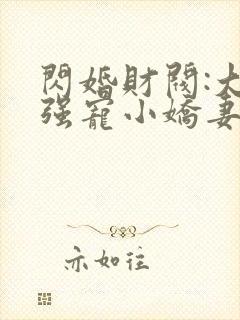 閃婚財閥:大
强寵小嬌妻
亦如往